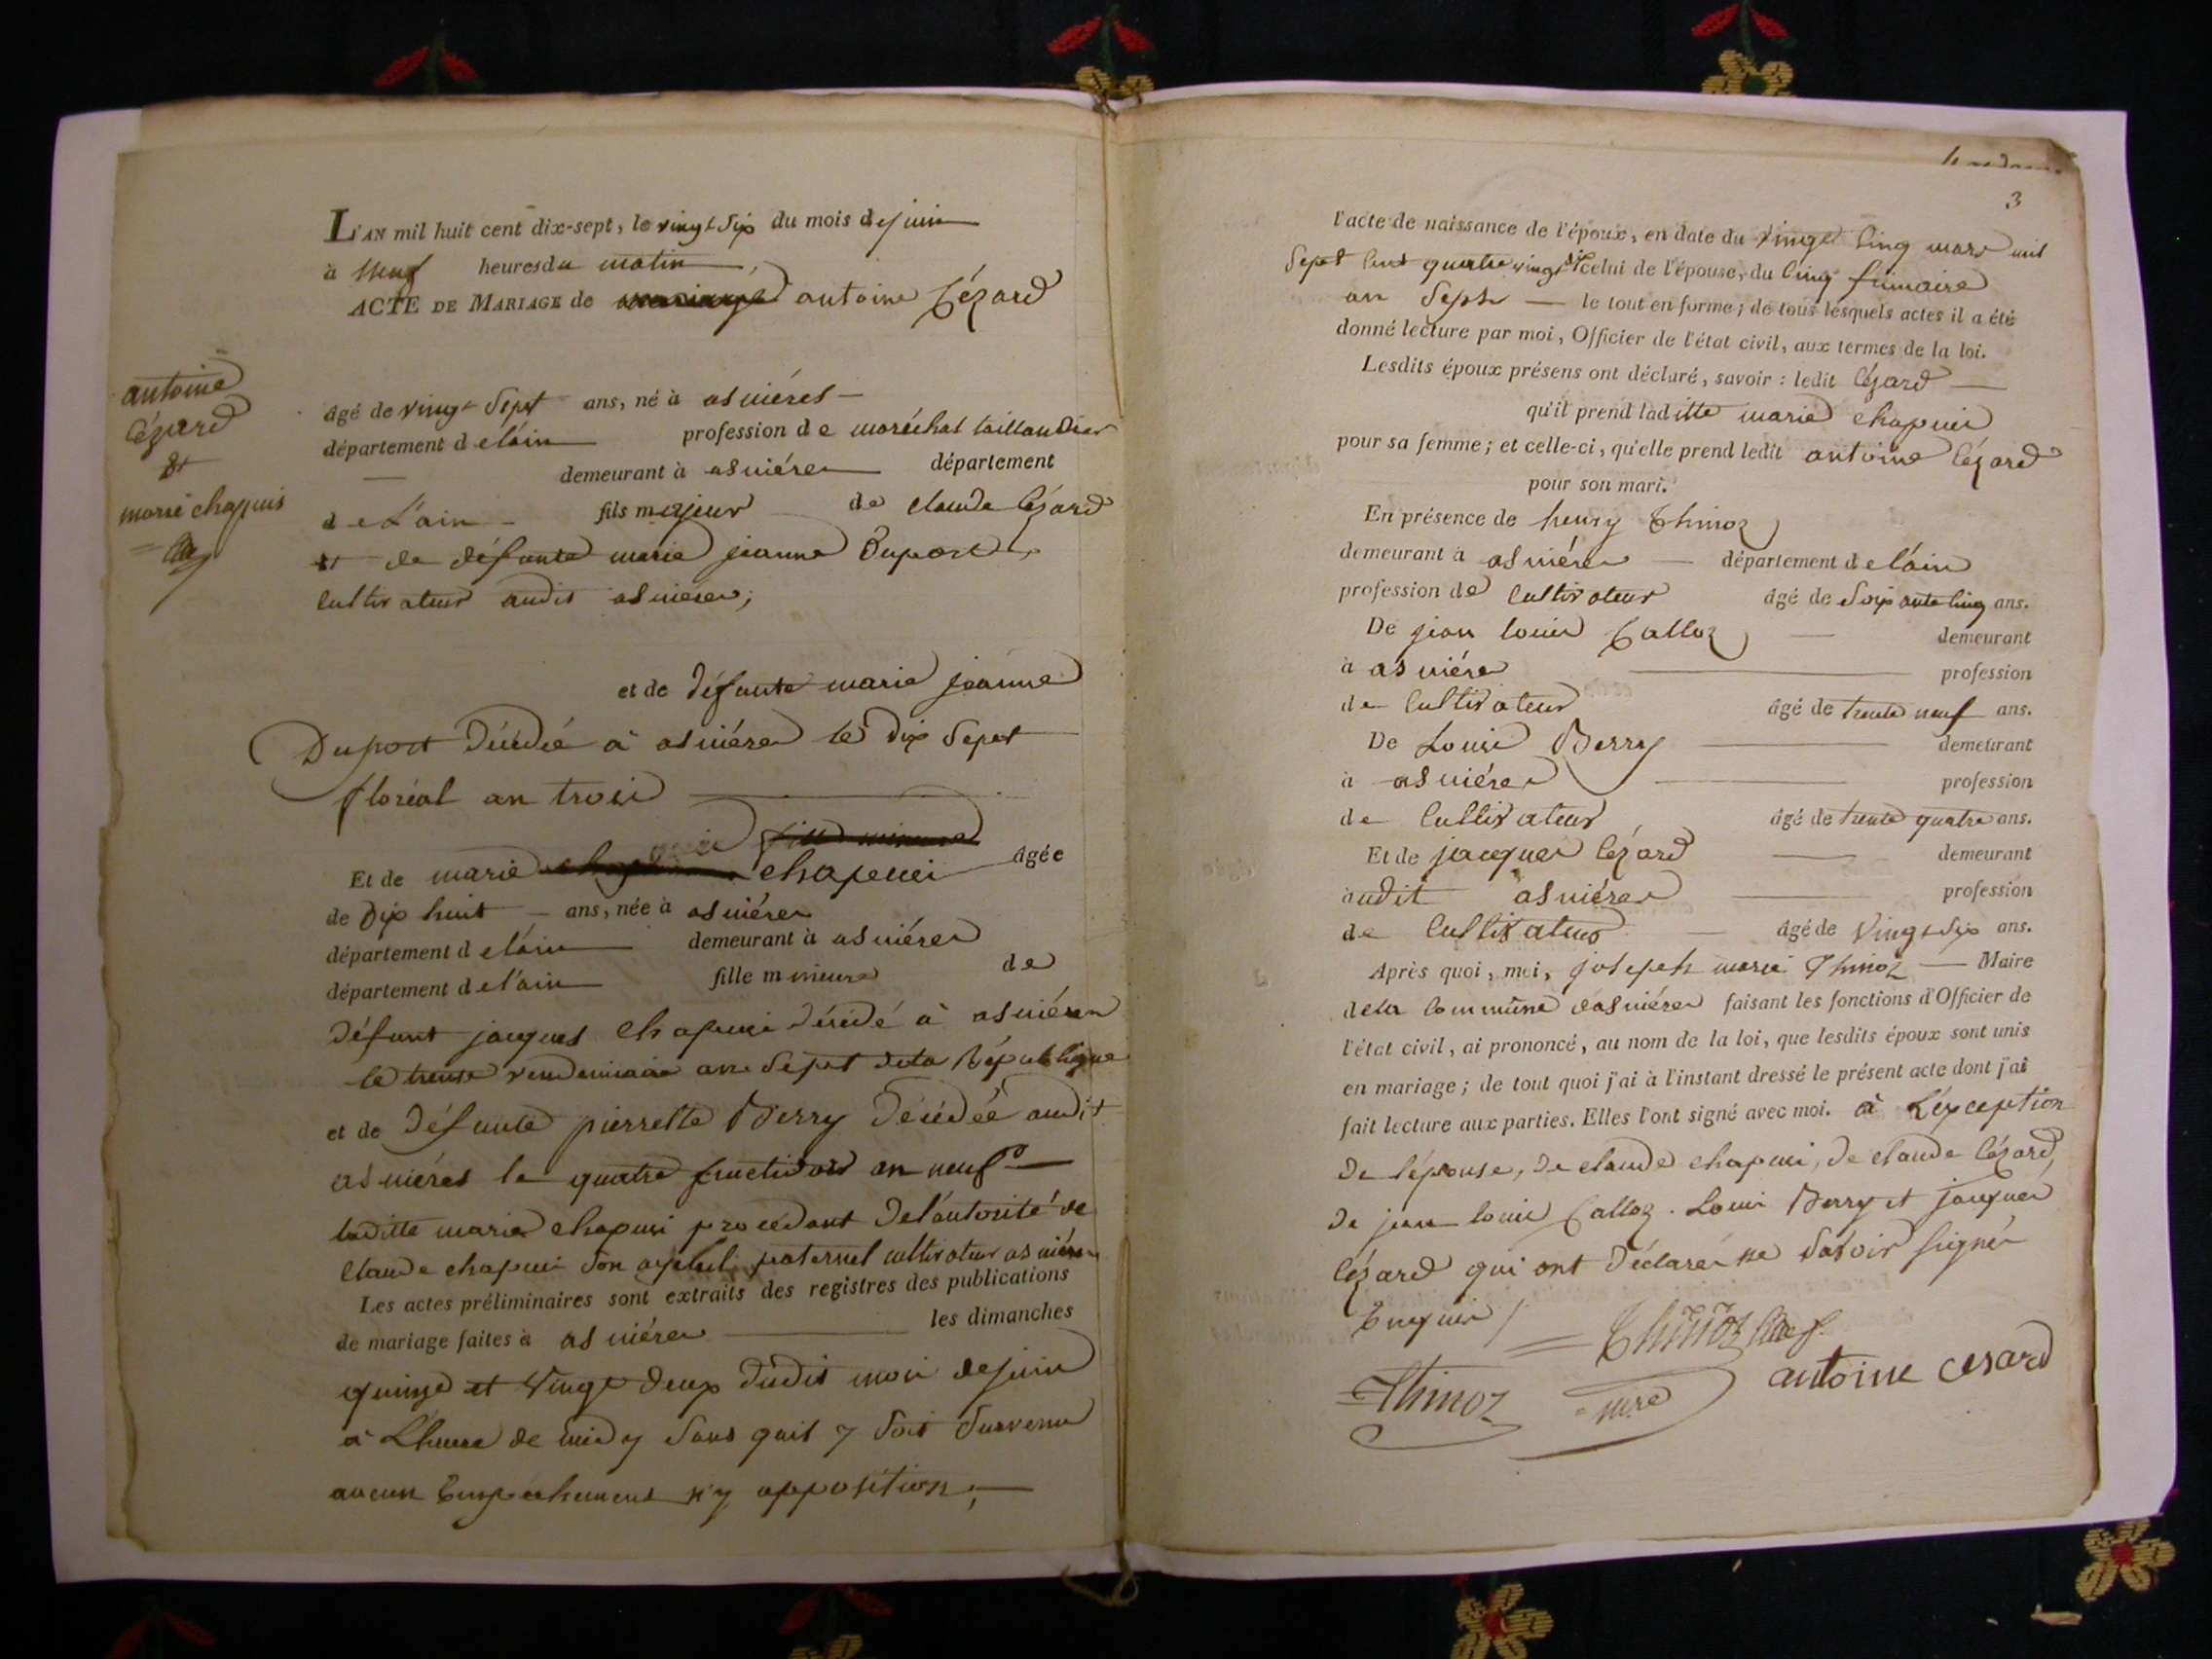 L'AN mil huit cent dix-sept, le vingt Six du mois de juin
à Neuf heures du matin,
ACTE DE MARIAGE de antoine Cézard
antoine
Cézard
et
marie chapuis
âgé de vingt Sept ans, né à asniéres
département de l'ain profession de maréchal taillandier
demeurant à asniéres département
de L'ain fils majeur de claude Cézard
et de défunte marie jeanne Duport
Cultivateur audit asniéres;
et de défunte marie jeanne
Duport Décédée à asniéres le Dix Sept
floréal an trois
fille mineure
Et de marie chapuis âgée
de Dix huit ans, née à asniéres
département de l'ain demeurant à asniéres
département de l'ain fille mineure de
défunt jacques Chapuis décédé à asniéres
le treise vendemiaire an Sept de la République
et de Défunte pierrette Berry Décédée audit
asniéres le quatre fructidor an neuf
laditte marie chapuis procédant de l'autorité de
Claude chapuis Son ayeul paternel cultivateur asniéres
Les actes préliminaires sont extraits des registres des publications
de mariage faites à asniéres les dimanches
quinze et Vingt deux dudit mois de juin
à L'heure de midy Sans quil y Soit Survenu
aucun Empéchement n'y opposition;
3
l'acte de naissance de l'époux, en date du vingt Cinq mars mil
Sept Cent quatre vingt dix celui de l'épouse, du Cinq frimaire
an Sept le tout en forme; de tous lesquels actes il a été
donné lecture par moi, Officier de l'état civil, aux termes de la loi.
Lesdits époux présens ont déclaré, savoir: ledit Cézard
qu'il prend laditte marie chapuis
pour sa femme; et celle-ci, qu'elle prend ledit antoine Cézard
pour son mari.
En présence de henry Thinoz
demeurant à asniéres département de l'ain
profession de Cultivateur âgé de Soixante Cinq ans.
De jean louis Calloz demeurant
à asniéres profession
de Cultivateur âgé de trente neuf ans.
De Louis Berry demeurant
à asniéres profession
de Cultivateur âgé de trente quatre ans.
Et de jacques Cézard demeurant
audit asniéres profession
de Cultivateur âgé de Vingt Six ans.
Après quoi, moi, joseph marie Thinoz Maire
de la Commune d'asniéres faisant les fonctions d'Officier de
l'état civil, ai prononcé, au nom de la loi, que lesdits époux sont unis
en mariage; de tout quoi j'ai à l'instant dressé le présent acte dont j'ai
fait lecture aux parties. Elles l'ont signé avec moi. à L'exception
De l'épouse, De claude chapuis, de claude Cézard,
De jean louis Calloz. Louis Berry et jacques
Cézard qui ont Déclaré ne Savoir Signér
Enquis
Thinoz
Thinoz mre antoine cesard